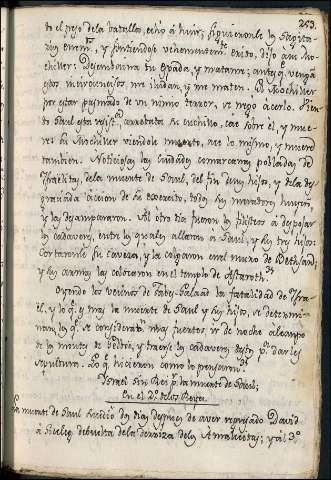 253.
do el peso de la batalla, echó á huir; siguieronle los Sagita-
rios enem.s, y sintiendose vehementem.te herido, dijo á su Mo-
chiller: Desembaina tu Espada, y matame; antes q.e vengan
estos incircuncisos, me iludan, y me maten. Su Mochiller
por estar pasmado de un nimio terror, se negó á hacerlo. Vien-
do Saul esta resist.a, arrebata su cuchillo, cae sobre él, y mue-
re: Su Mochiller viendole muerto, hace lo mismo, y muere
tambien. Noticiosas las Ciudades comarcanas pobladas de
Israelitas, de la muerte de Saul, del fin de sus hijos, y de la des-
graciada faccion de su exercito, todos sus moradores huyeron,
y las desampararon. Al otro dia fueron los filisteos á despojar
los cadaveres, entre los quales allaron a Saul, y sus tres hijos:
Cortaronle su caveza, y la colgaron en el muro de Bethsan;
y sus armas las colocaron en el templo de Astaroth.
Oyendo los vecinos de Jabes-Galaad la fatalidad de Isra-
él, y lo q.e es mas la muerte de Saul y sus hijos, se determi-
nan los q.e se consideraban mas fuertes ir de noche al campo
de los montes de Gelboe, y traerse los cadaveres p.a darles
sepultura. Lo q.e hicieron como lo pensaron.
Israel sin Rei p.r la muerte de Saul;
En el 2.o de los Reyes.
La muerte de Saul sucedió dos dias despues de aver regresado David
á Siceleg de buelta de la derrota de los Amalecitas; y al 3.o